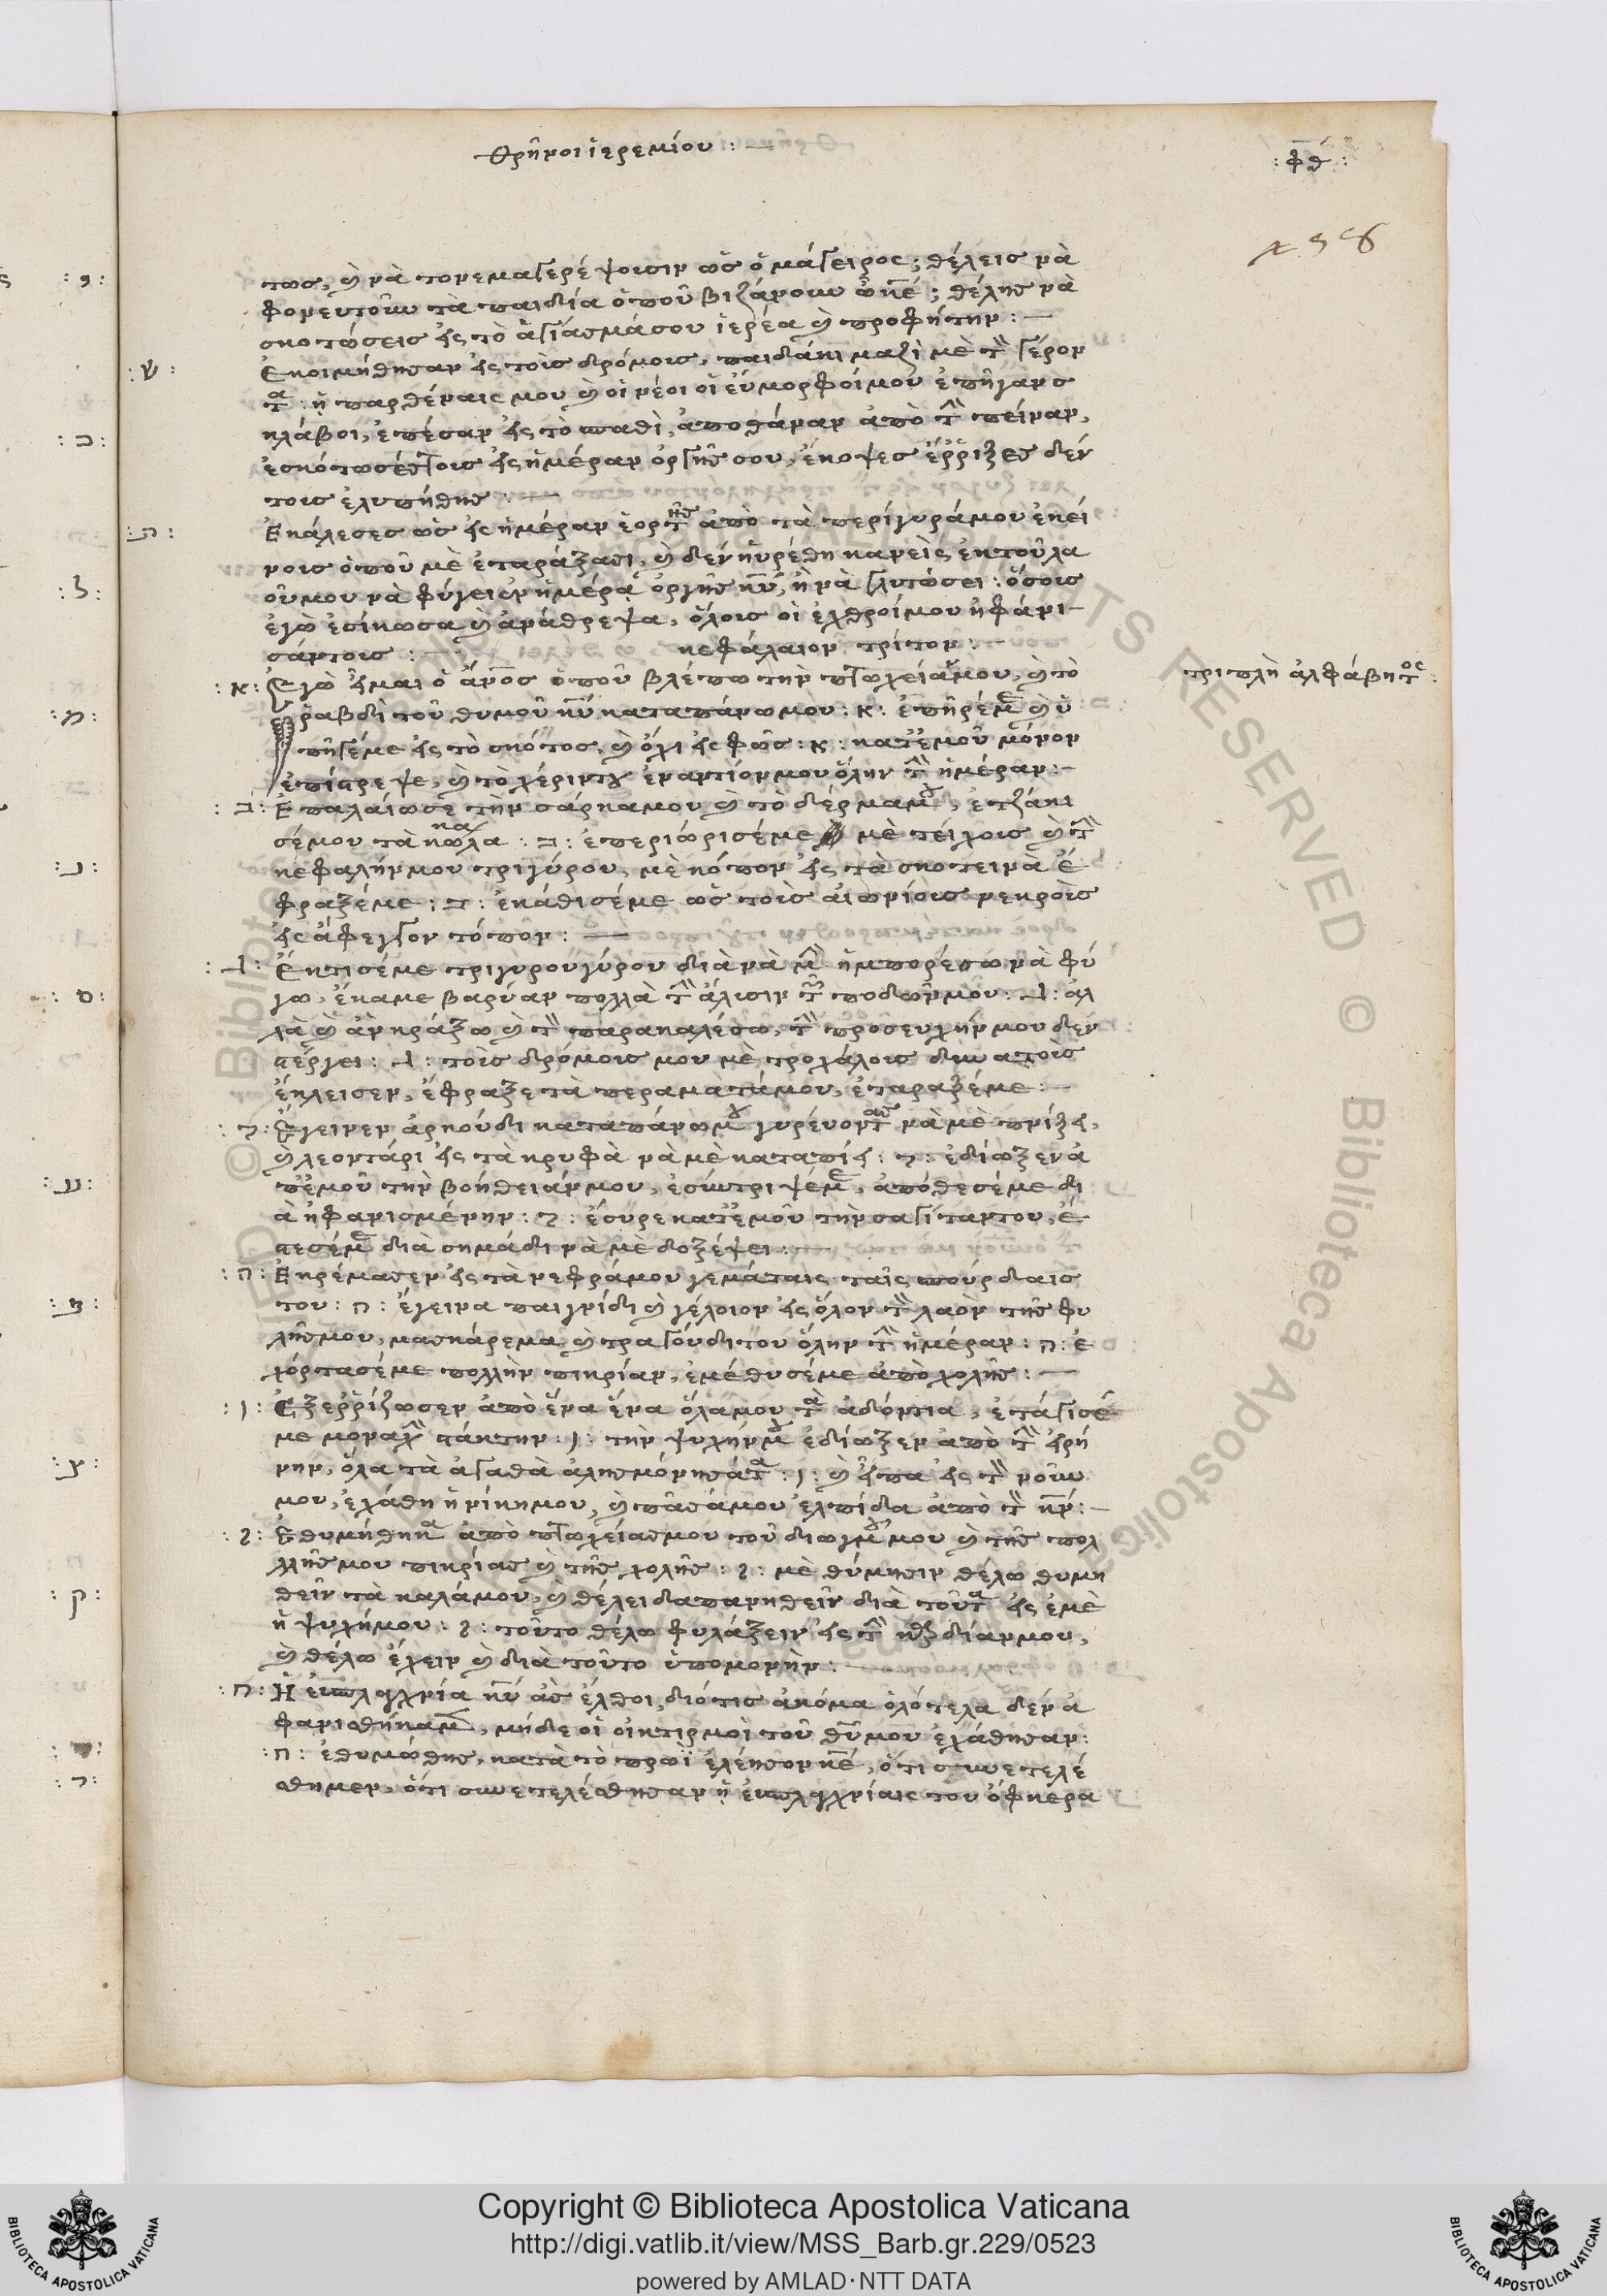 θρῆνοι ἱερεμίου : —
: φθ :
τως, καὶ νὰ τον εμαγερέψουσιν ὡς ὁ μάγειρος; θέλεις νὰ
φονευτοῦν τὰ παιδία ὁποῦ βιζάνουν ὦ κε̄; θέλης νὰ
σκοτώσεις εἰς τὸ ἁγίασμά σου ἱερέα καὶ προφήτην : —
: ש :
Ἐκοιμήθησαν εἰς τοὶς δρόμοις, παιδάκι μαζὶ μὲ τὸν γέρον
τα : ἡ παρθέναις μου καὶ οἱ νέοι οἱ εὔμορφοί μου ἐπῆγαν σ
κλάβοι, ἐπέσαν εἰς τὸ σπαθὶ, ἀποθάναν ἀπὸ τὴν πείναν,
ἐσκότωσές τοις εἰς ἡμέραν ὀργῆς σου, ἔκοψες ἐῤῥιξες δέν
τοις ἐλυπήθης : —
: ת :
Ἐκάλεσες ὡς εἰς ἡμέραν ἑορτῆς ἀπὸ τὰ περίγυρά μου ἐκεί
νοις ὁποῦ μὲ ἐταράξασι, καὶ δὲν ηὑρέθη κανεὶς ἐκ τοῦ λα
οῦ μου νὰ φύγει ἐν ἡμέρᾳ ὀργῆς κῡ, ἢ νὰ γλυτώσει : ὅσοις
ἐγὼ ἐσίκωσα καὶ ἀνάθρεψα, ὅλοις οἱ ἐχθροί μου ηφάνι-
σάν τοις : — κεφάλαιον τρίτον : —
: א : Ἐγὼ εἶμαι ὁ ἄνο̄ς ὁποῦ βλέπω τὴν πτωχείάν μου, καὶ τὸ
τριπλὴ ἀλφάβητος :
ραβδὶ τοῦ θυμοῦ κῡ καταπάνω μου : א : ἐπῆρέ με καὶ ὑ
πῆγέ με εἰς τὸ σκότος, καὶ ὄχι εἰς φῶς : א : κατ' ἐμοῦ μόνον
ἐπίστρεψε, καὶ τὸ χέριν του ἐναντίον μου ὅλην τὴν ἡμέραν : —
: ב : Ἐπαλαίωσε τὴν σάρκα μου καὶ τὸ δέρμα μου, ἐτζάκι
σέ μου τὰ κόκαλα : ב : ἐπεριώρισέ με μὲ τείχοις καὶ τὴν
κεφαλήν μου τριγύρου, μὲ κόπον εἰς τὰ σκοτεινὰ ἔ
φραξέ με : ב : ἐκάθισέ με ὡς τοὶς αἰωνίοις νεκροὶς
εἰς ἄφεγγον τόπον : —
: ג : Ἔκτισέ με τριγύρου γύρου διὰ νὰ μὴν ἡμπορέσω νὰ φύ
γω, ἔκαμε βαρύαν πολλὰ τὴν ἄλισιν τῶν ποδῶν μου : ג : ἀλ
λὰ καὶ ἀν κράξω καὶ τὸν παρακαλέσω, τὴν προσευχήν μου δὲν
στέργει : ג : τοὶς δρόμοις μου μὲ τροχάλοις δυνατοὶς
ἔκλεισεν, ἔφραξε τὰ περαματά μου, ἐταραξέ με : —
: ד : Ἔγεινεν ἀρκούδι καταπάνω μου γυρέυοντας νὰ μὲ πνίξει,
καὶ λεοντάρι εἰς τὰ κρυφὰ νὰ μὲ καταπίει : ד : ἐδίωξεν ἀ
π' ἐμοῦ τὴν βοήθειάν μου, ἐσύντριψέ με, ἀπόθεσέ με δι
ὰ ηφανισμένην : ד : ἔσυρε κατ' ἐμοῦ τὴν σαγίταν του, ἔ
στεσέ με διὰ σημάδι νὰ μὲ δοξέψει : —
: ה : Ἐκρέμασεν εἰς τὰ νεφρά μου γεμάταις ταῖς κούρδαις
του : ה : ἔγεινα παιγνίδι καὶ γέλοιον εἰς ὅλον τὸν λαὸν τῆς φυ
λῆς μου, μασκάρεμα καὶ τραγούδι του ὅλην τὴν ἡμέραν : ה : ἐ
χόρτασέ με πολλὴν πικρίαν, ἐμέθυσέ με ἀπὸ χολῆς : —
: ו : Ἐξεῤῥίζωσεν ἀπὸ ἕνα ἕνα ὅλα μου τὰ ἀδόντια, ἐτάγισέ
με μοναχὴν στάκτην : ו : τὴν ψυχήν μου ἐδίωξεν ἀπὸ τὴν εἰρή
νην, ὅλα τὰ ἀγαθὰ ἀλησμόνησά τα : ו : καὶ εἶπα εἰς τὸν νοῦν
μου, ἐχάθη ἡ νίκη μου, καὶ πᾶσά μου ἐλπίδα ἀπὸ τὸν κν̄ : —
: ז : Ἐθυμήθηκα ἀπὸ πτωχείας μου τοῦ διωγμοῦ μου καὶ τῆς πολ
λῆς μου πικρίας καὶ τῆς χολῆς : ז : μὲ θύμησιν θέλω θυμη
θεῖν τὰ καλά μου, καὶ θέλει δαπανηθεῖν διὰ τοῦτα εἰς ἐμὲ
ἡ ψυχή μου : ז : τοῦτο θέλω φυλάξειν εἰς τὴν καρδίαν μου,
καὶ θέλω ἔχειν καὶ διὰ τοῦτο ὑπομονὴν : —
: ח : Ἡ ἐυσπλαχνία κῡ ἂς ἔλθοι, διότις ἀκόμα ὁλότελα δὲν ἀ
φανισθήκαμεν, μήδε οἱ οἰκτιρμοὶ τοῦ θῡ μου ἐχάθησαν :
: ח : ἐθυμώθης, κατὰ τὸ πρωῒ ἐλέησον κε̄, ὅτι συνετελέ
σθημεν, ὅτι συνετελέσθησαν ἡ ἐυσπλαχνίαις του ὀψικέρα
: ו :
: כ :
: ל :
: מ :
: נ :
: ס :
: ע :
: צ :
: ק :
: ר :
Copyright © Biblioteca Apostolica Vaticana
http://digi.vatlib.it/view/MSS_Barb.gr.229/0523
powered by AMLAD·NTT DATA
BIBLIOTECA APOSTOLICA VATICANA
BIBLIOTECA APOSTOLICA VATICANA